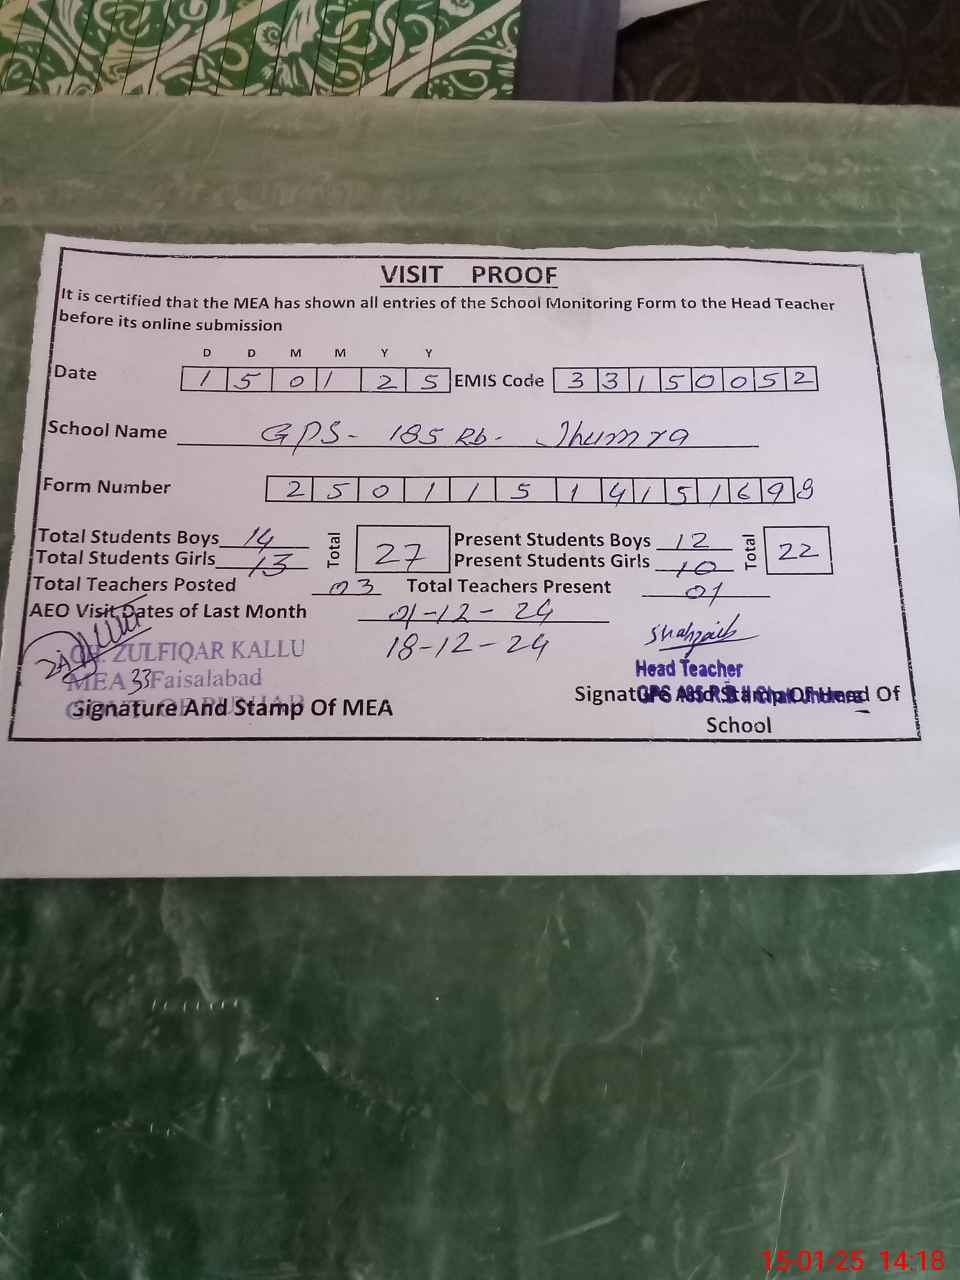 VISIT PROOF
It is certified that the MEA has shown all entries of the School Monitoring Form to the Head Teacher
before its online submission
D D M M Y Y
Date 1 5 0 1 2 5 EMIS Code 3 3 1 5 0 0 5 2
School Name GPS- 185 Rb- Jhumra
Form Number 2 5 0 1 1 5 1 4 1 5 1 6 9 9
Total Students Boys 14 Total 27 Present Students Boys 12 Total 22
Total Students Girls 13 Present Students Girls 10
Total Teachers Posted 03 Total Teachers Present 01
AEO Visit Dates of Last Month 01-12-24
18-12-24
ZULFIQAR KALLU
MEA 33 Faisalabad
Signature And Stamp Of MEA
Shahzaib
Head Teacher
Signature And Stamp Of Head Of
School
15-01-25 14:18